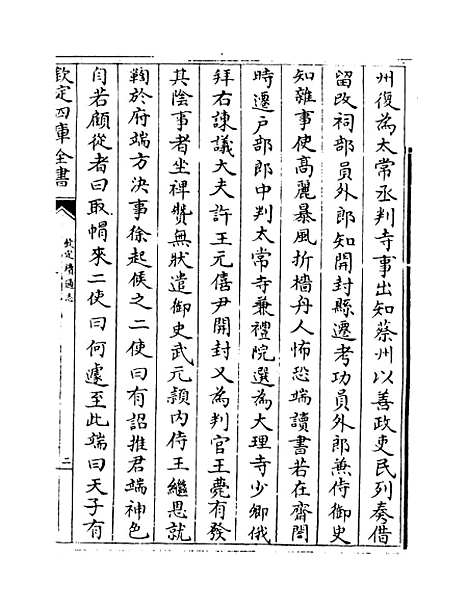 州復為太常丞判寺事出知蔡州以善政吏民列奏借
留改祠部員外郎知開封縣遷考功員外郎兼侍御史
知雜事使高麗暴風折檣舟人怖恐端讀書若在齋閣
時遷戶部郎中判太常寺兼禮院選為大理寺少卿俄
拜右諫議大夫許王元僖尹開封又為判官王薨有發
其陰事者坐裨贊無狀遣御史武元頴內侍王繼恩就
鞫於府端方決事徐起候之二使曰有詔推君端神色
自若顧從者曰取㡌來二使曰何遽至此端曰天子有
欽定四庫全書
欽定續通志
二